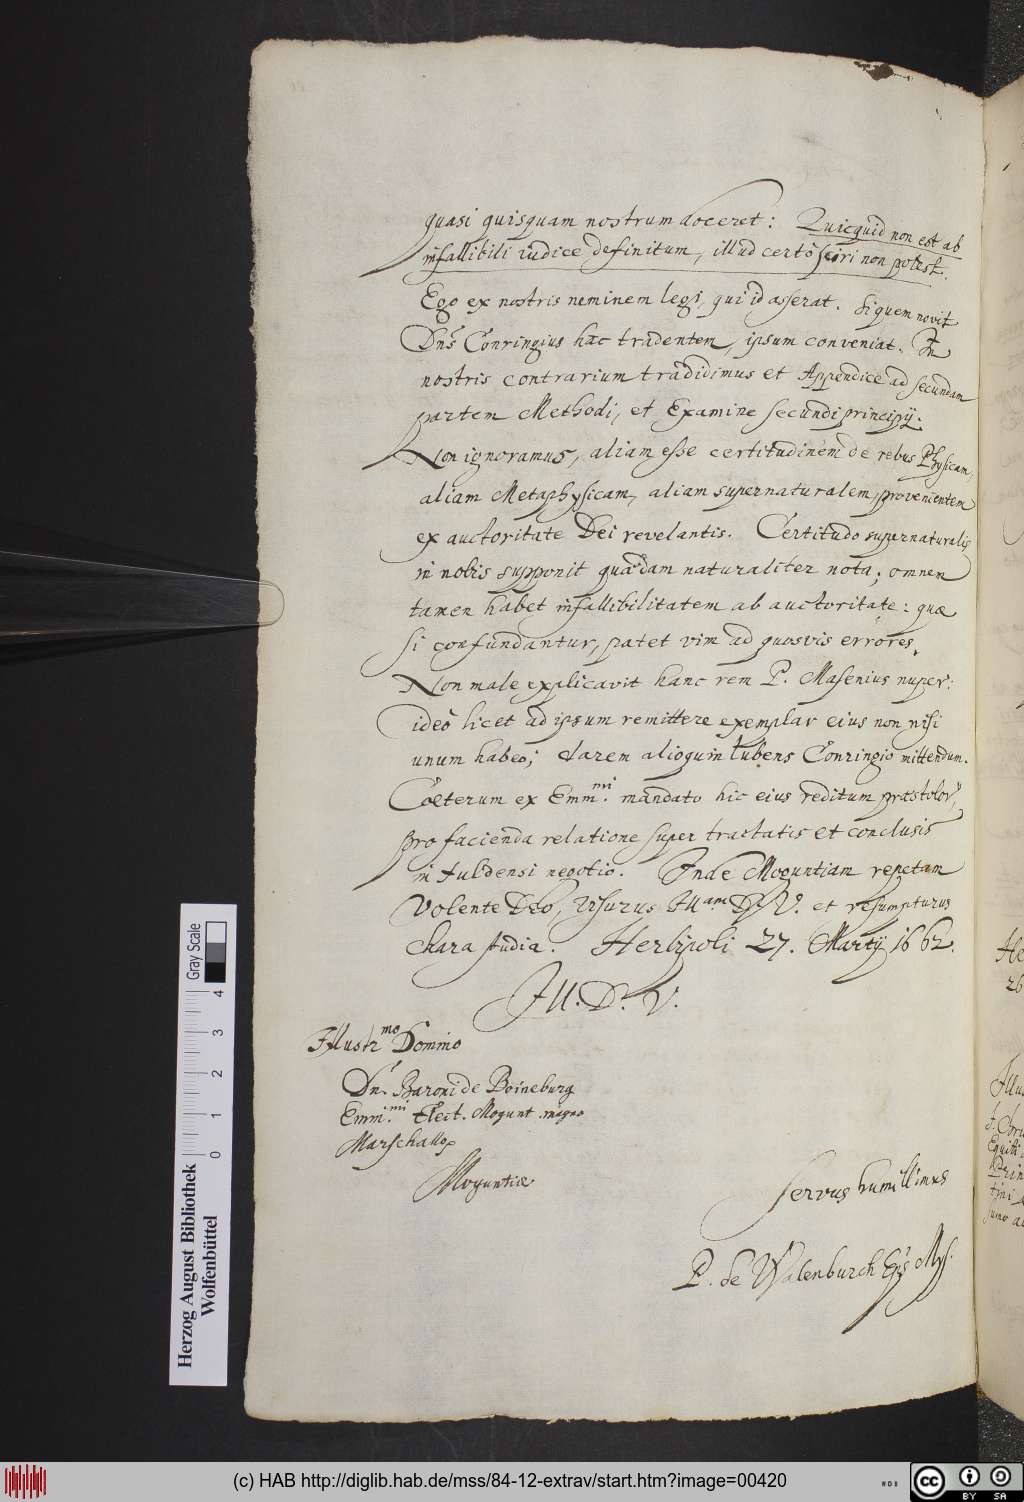 quasi quisquam nostrum doceret: Quicquid non est ab
infallibili iudice definitum, illud certò sciri non potest.
Ego ex nostris neminem legi, qui id asserat. Si quem novit
Dns Conringius hæc tradentem, ipsum conveniat. In
nostris contrarium tradidimus et Appendice ad secundam
partem Methodi, et Examine secundi principij.
Non ignoramus, aliam esse certitudinem de rebus Physicam,
aliam Metaphysicam, aliam supernaturalem, provenientem
ex auctoritate Dei revelantis. Certitudo supernaturalis
in nobis supponit quædam naturaliter nota; omnem
tamen habet infallibilitatem ab auctoritate: quæ
si confundantur, patet vim ad quosvis errores.
Non male explicavit hanc rem P. Masenius nuper:
ideò licet ad ipsum remittere exemplar eius non nisi
unum habeo; darem alioquin lubens Conringio mittendum.
Cœterum ex Emm.mi mandato hic eius reditum præstolor,
pro facienda relatione super tractatis et conclusis
in Fuldensi negotio. Inde Moguntiam repetam
Volente Deo, Visurus Ill.am D. V. et resumpturus
chara studia. Herbipoli 27. Martij 1662.
Ill. D. V.
Illustrmo Domino
Dn. Baroni de Boineburg
Emm.mi Elect. Mogunt. magno
Marschallo
Moguntiæ
Servus humillimus
P. de Walenburch Eps Mys.
Herzog August Bibliothek
Wolfenbüttel
Gray Scale
0 1 2 3 4
(c) HAB http://diglib.hab.de/mss/84-12-extrav/start.htm?image=00420
WDB
cc BY SA